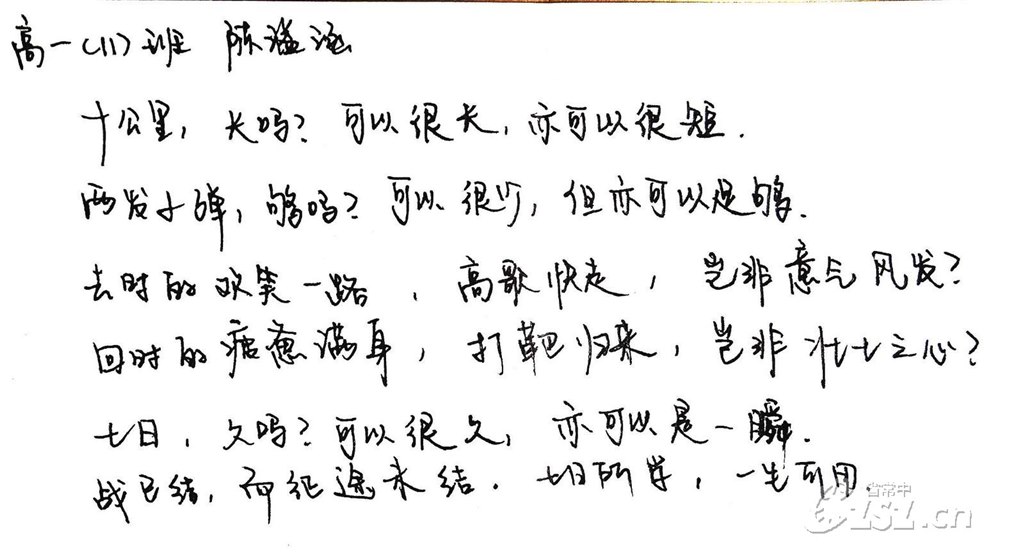 高一(11)班 陈溢涵
十公里，长吗？可以很长，亦可以很短．
两发子弹，够吗？可以很少，但亦可以足够．
去时的欢笑一路，高歌快走，岂非意气风发？
回时的疲惫满身，打靶归来，岂非壮士之心？
七日，久吗？可以很久，亦可以是一瞬．
战已结，而征途未结．七日所学，一生可用．
省常中
CSZ.cn